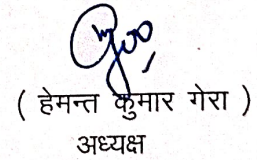 ( हेमन्त कुमार गेरा )
अध्यक्ष